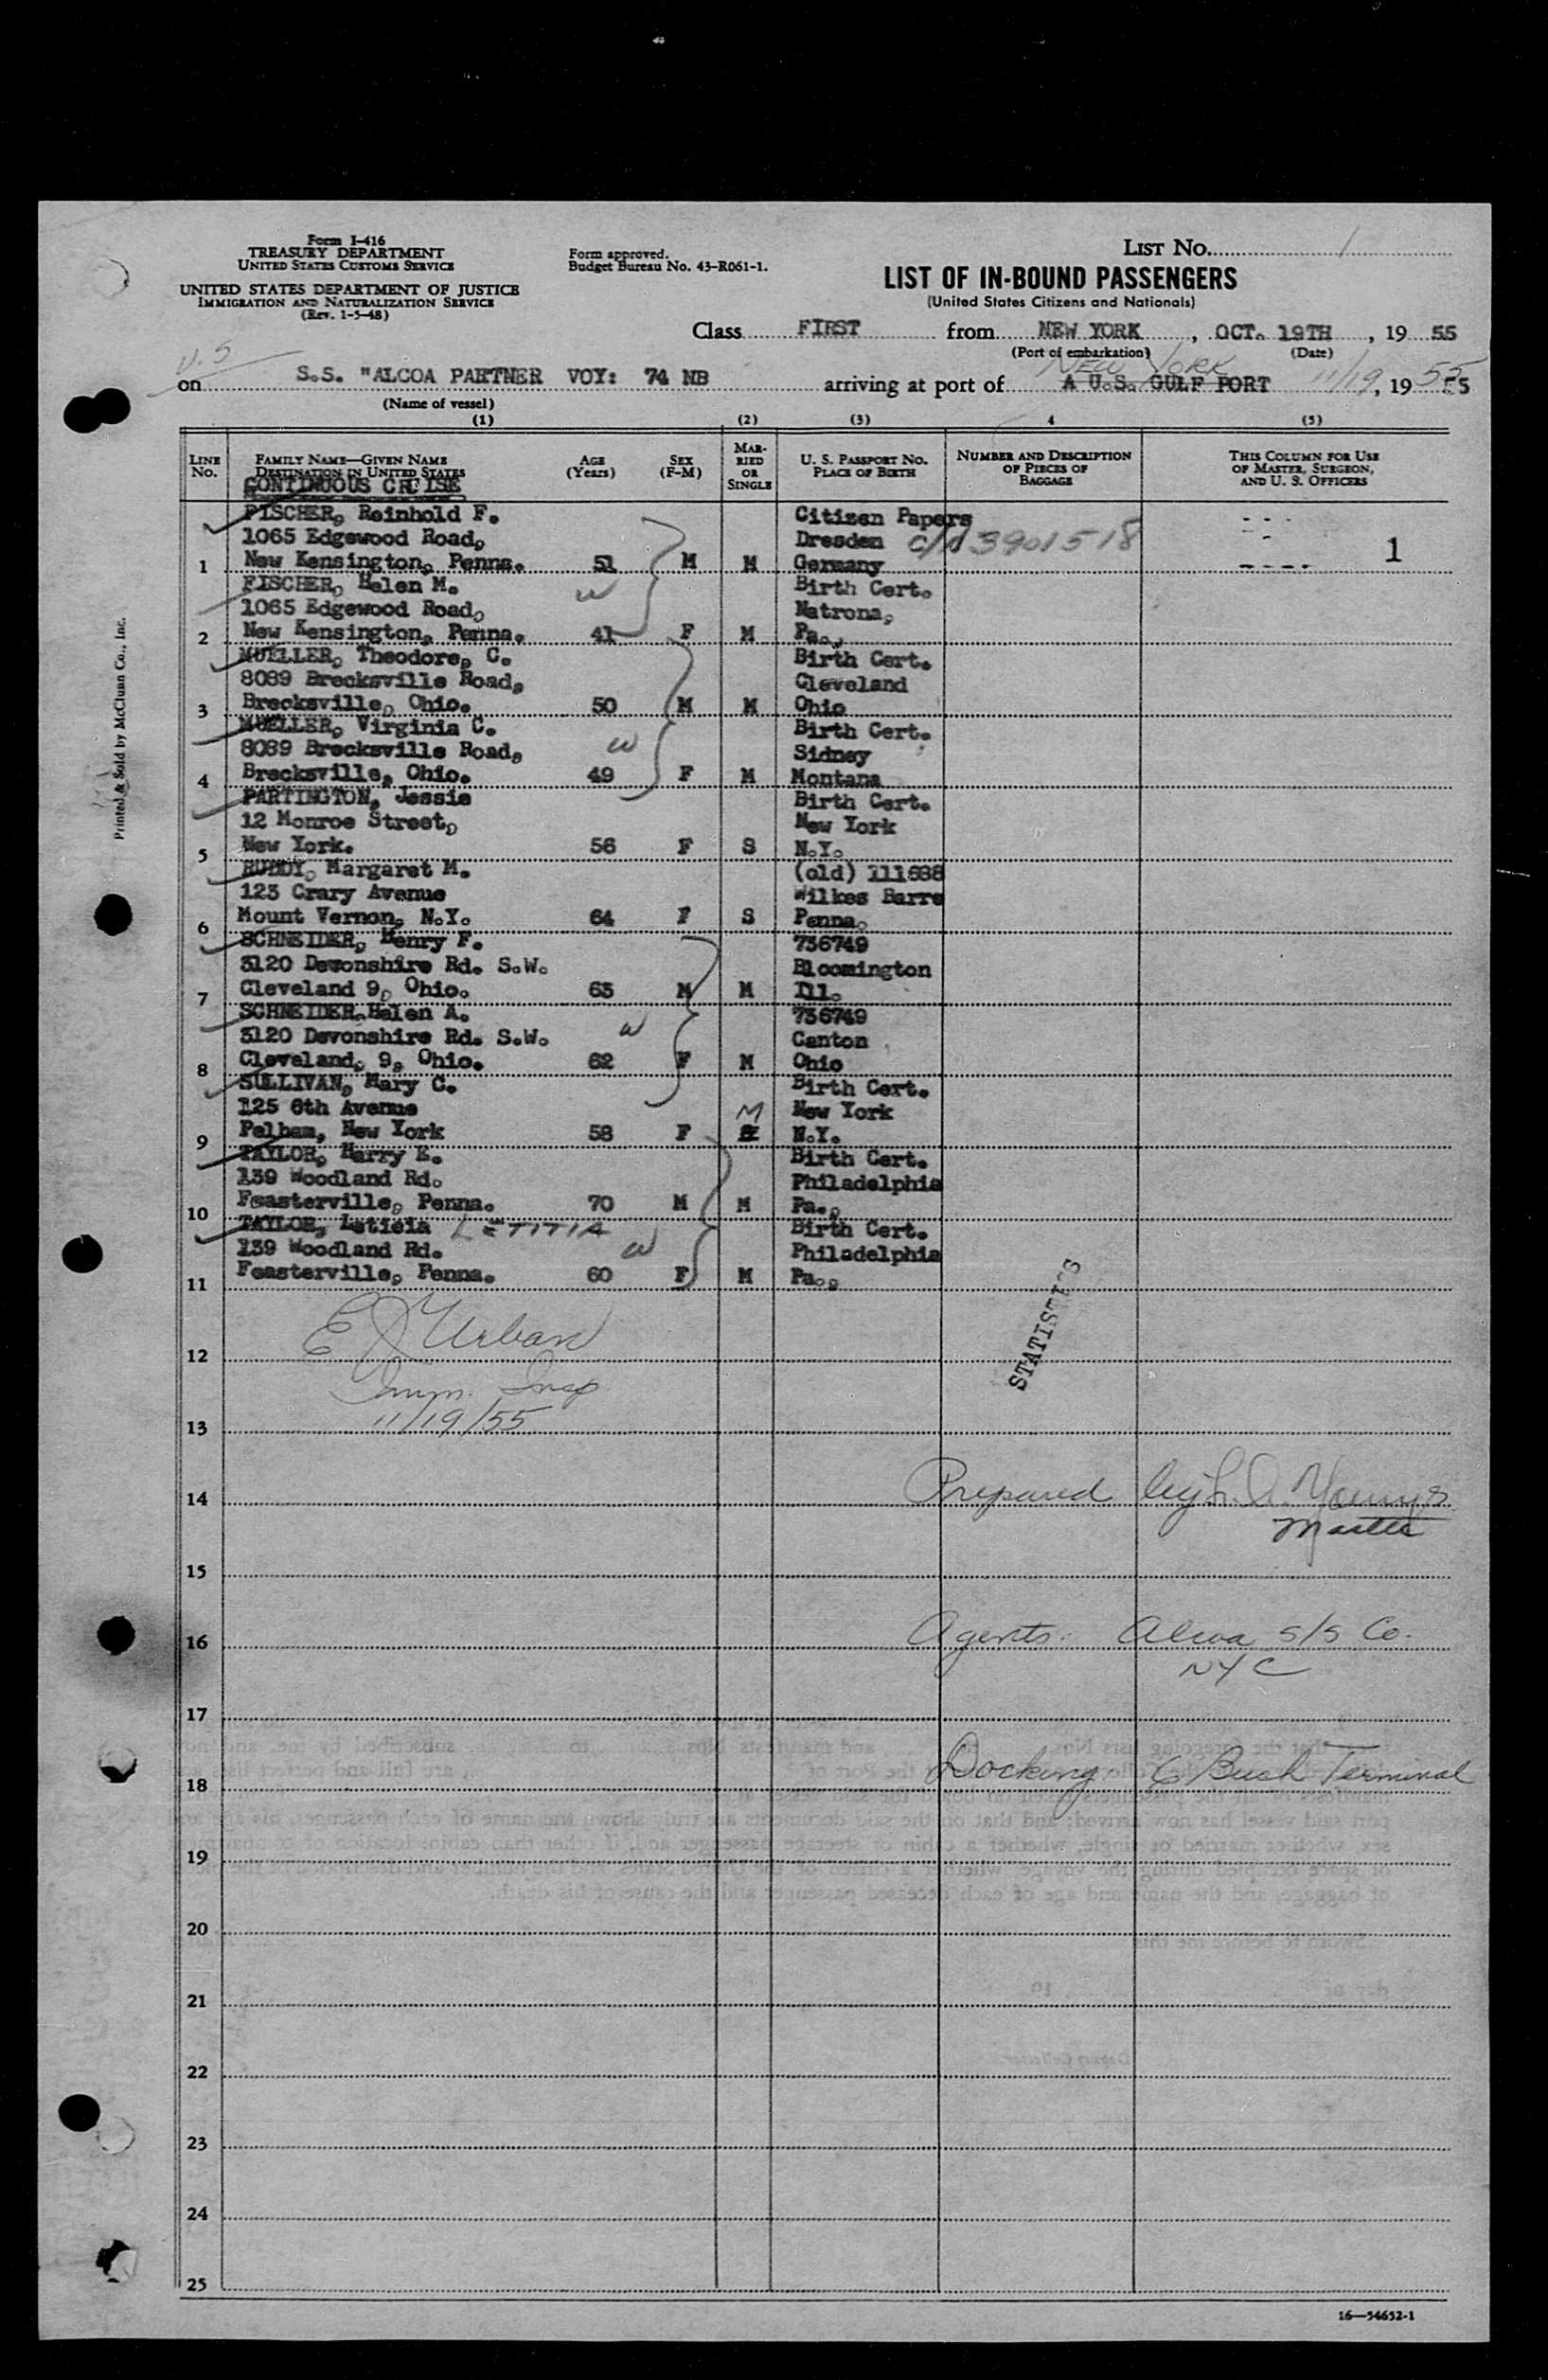 Form I-416
TREASURY DEPARTMENT
UNITED STATES CUSTOMS SERVICE
UNITED STATES DEPARTMENT OF JUSTICE
IMMIGRATION AND NATURALIZATION SERVICE
(Rev. 1-5-48)
Form approved.
Budget Bureau No. 43-R061-1.
LIST No. 1
LIST OF IN-BOUND PASSENGERS
(United States Citizens and Nationals)
Class FIRST from NEW YORK, OCT. 19TH, 19 55
(Port of embarkation) (Date)
U.S
NEW YORK 11/19 55
on S.S. "ALCOA PARTNER VOY: 74 NB arriving at port of A U.S. GULF PORT, 19 55
(Name of vessel)
(1) (2) (3) 4 (5)
LINE No. FAMILY NAME—GIVEN NAME DESTINATION IN UNITED STATES AGE (Years) SEX (F-M) MARRIED OR SINGLE U. S. PASSPORT NO. PLACE OF BIRTH NUMBER AND DESCRIPTION OF PIECES OF BAGGAGE THIS COLUMN FOR USE OF MASTER, SURGEON, AND U. S. OFFICERS
CONTINUOUS CRUISE
FISCHER, Reinhold F. Citizen Papers
1065 Edgewood Road, Dresden C/N 3901518
1 New Kensington, Penna. 51 M M Germany 1
FISCHER, Helen M. W Birth Cert.
1065 Edgewood Road, Natrona,
2 New Kensington, Penna. 41 F M Pa.,
MUELLER, Theodore, C. Birth Cert.
8089 Brecksville Road, Cleveland
3 Brecksville, Ohio. 50 M M Ohio
MUELLER, Virginia C. Birth Cert.
8089 Brecksville Road, W Sidney
4 Brecksville, Ohio. 49 F M Montana
PARTINGTON, Jessie Birth Cert.
12 Monroe Street, New York
5 New York. 56 F S N.Y.
RUDDY, Margaret M. (old) 111688
123 Crary Avenue Wilkes Barre
6 Mount Vernon, N.Y. 64 F S Penna.
SCHNEIDER, Henry F. 736749
3120 Devonshire Rd. S.W. Bloomington
7 Cleveland 9, Ohio. 63 M M Ill.
SCHNEIDER, Helen A. 736749
3120 Devonshire Rd. S.W. W Canton
8 Cleveland, 9, Ohio. 62 F M Ohio
SULLIVAN, Mary C. Birth Cert.
125 6th Avenue M New York
9 Pelham, New York 58 F N.Y.
TAYLOR, Harry E. Birth Cert.
139 Woodland Rd. Philadelphia
10 Feasterville, Penna. 70 M M Pa.,
TAYLOR, Leticia LETITIA Birth Cert.
139 Woodland Rd. W Philadelphia
11 Feasterville, Penna. 60 F M Pa.,
E J Urban
12
STATISTICS
Imm. Insp.
11/19/55
13
14 Prepared by L. A. Youngs
Master
15
16 Agents: Alcoa S/S Co.
NYC
17
18 Docking: 6 Bush Terminal
19
20
21
22
23
24
25
16—54652-1
Printed & Sold by McCluan Co., Inc.